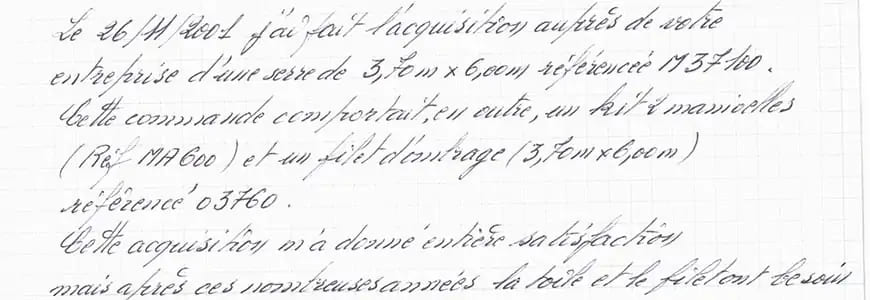 Le 26/11/2001 j'ai fait l'acquisition auprès de votre
entreprise d'une serre de 3,70m x 6,00m référencée M37100.
Cette commande comportait, en outre, un kit 2 manivelles
(Réf MA600) et un filet d'ombrage (3,70m x 6,00m)
référencé 03760.
Cette acquisition m'a donné entière satisfaction
mais après ces nombreuses années la toile et le filet ont besoin